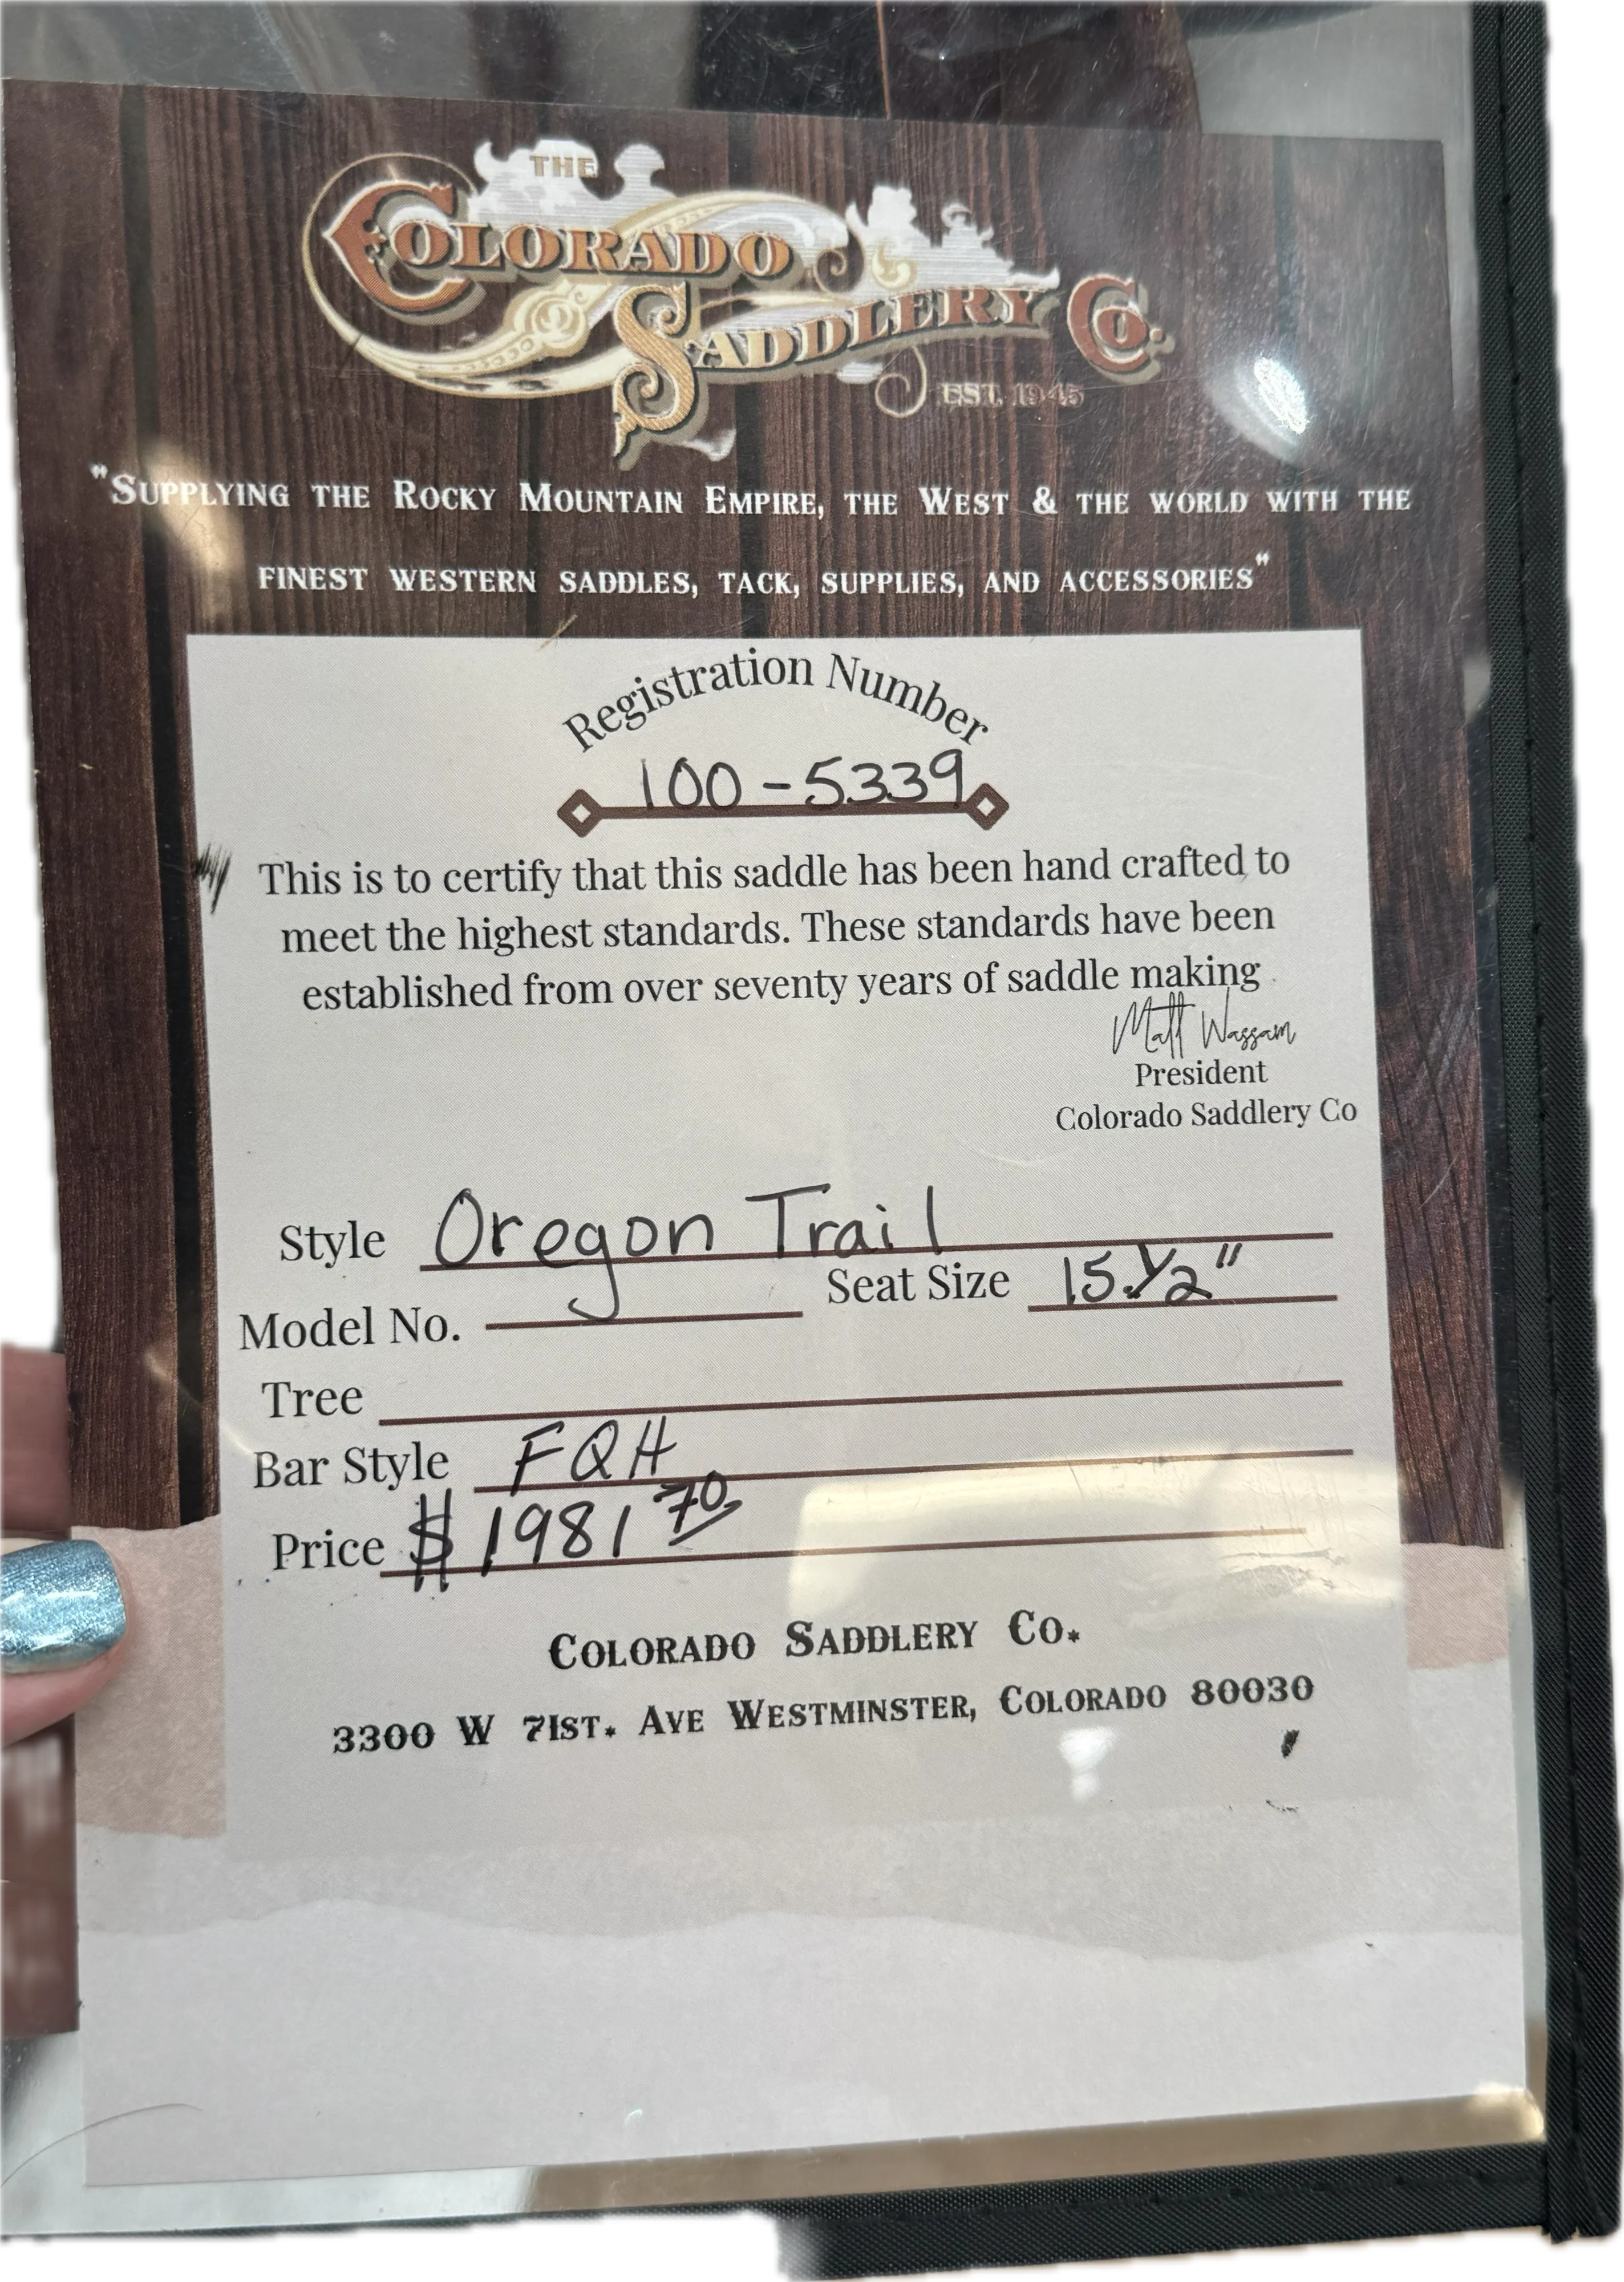 THE
COLORADO
SADDLERY CO.
EST. 1945
"SUPPLYING THE ROCKY MOUNTAIN EMPIRE, THE WEST & THE WORLD WITH THE
FINEST WESTERN SADDLES, TACK, SUPPLIES, AND ACCESSORIES"
Registration Number
100-5339
This is to certify that this saddle has been hand crafted to
meet the highest standards. These standards have been
established from over seventy years of saddle making
Matt Wassam
President
Colorado Saddlery Co
Style Oregon Trail
Seat Size 15.1/2"
Model No.
Tree
Bar Style FQH
Price $1981 70
COLORADO SADDLERY CO.
3300 W 71ST. AVE WESTMINSTER, COLORADO 80030